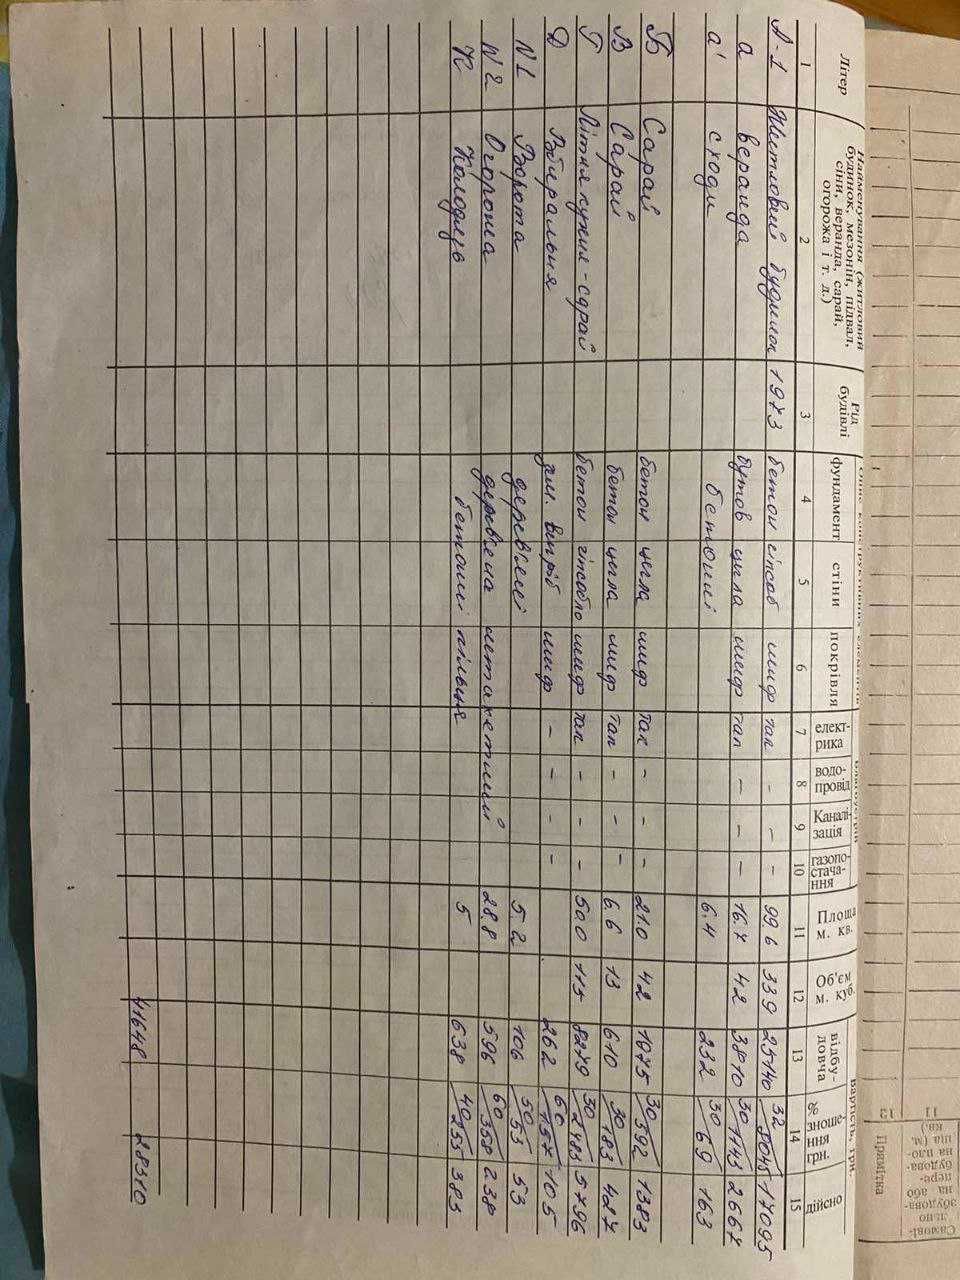 Літер
Найменування (житловий
будинок, мезонін, підвал,
сіни, веранда, сарай,
огорожа і т. д.)
Рід
будівлі
фундамент
стіни
покрівля
елект-
рика
водо-
провід
Каналі-
зація
газопо-
стача-
ння
Площа
м. кв.
Об'єм
м. куб.
Вартість, грн.
відбу-
довча
%
зноше-
ння
грн.
дійсно
1 2 3 4 5 6 7 8 9 10 11 12 13 14 15
А-1 Житловий будинок 1973 бетон гіпсоб шифр так - - - 99.6 339 25140 32/8045 17095
а веранда бутов цегла шифр так - - - 16.7 42 3810 30/1143 2667
а' сходи бетонні 6.4 232 30/69 163
Б Сарай бетон цегла шифр так - - - 21.0 42 1975 30/592 1383
В Сарай бетон цегла шифр так - - - 6.6 13 610 30/183 427
Г Літня кухня-сарай бетон гіпсобло шифр так - - - 50.0 115 8279 30/2483 5796
Д Вбиральня зм. вигріб шифр - - - - 262 60/157 105
N1 Ворота дерев'яні 5.2 106 50/53 53
N2 Огорожа дерев'яна штахетний 28.8 596 60/358 238
К Колодязь бетонні кільця 5 638 40/255 383
41648 28310
11 12
Примітка
Самові-
льно
збудова-
на або
пере-
будова-
на пло-
ща (м.
кв.)